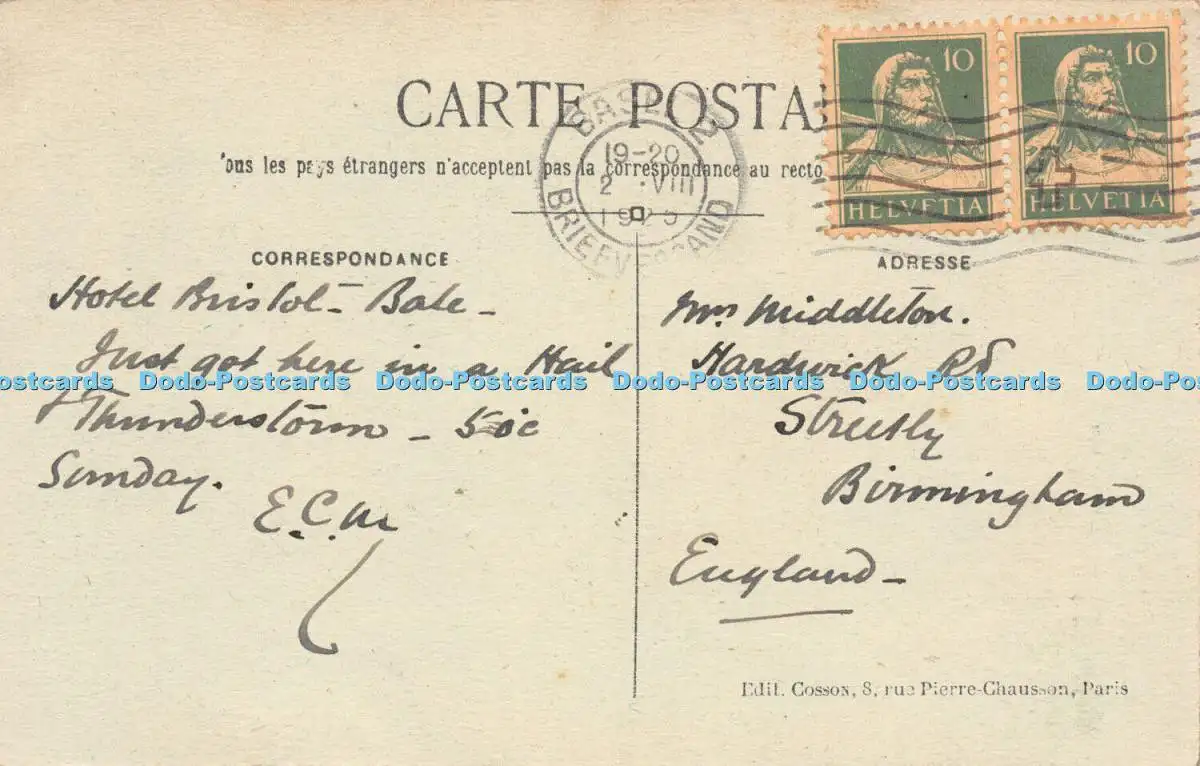 CARTE POSTA
10 10
BASEL
19-20
2 VIII
1925
BRIEFVERSAND
ous les pays étrangers n'acceptent pas la correspondance au recto
HELVETIA HELVETIA
CORRESPONDANCE
ADRESSE
Hotel Bristol - Bale -
Just got here in a Hail
& Thunderstorm -
Sunday.
E.C.M
Mrs Middleton.
Hardwick Rd
Streetly
Birmingham
England -
Dodo-Postcards Dodo-Postcards Dodo-Postcards Dodo-Postcards Dodo-Postcards Dodo-Postcards
Edit. Cosson, 8, rue Pierre-Chausson, Paris